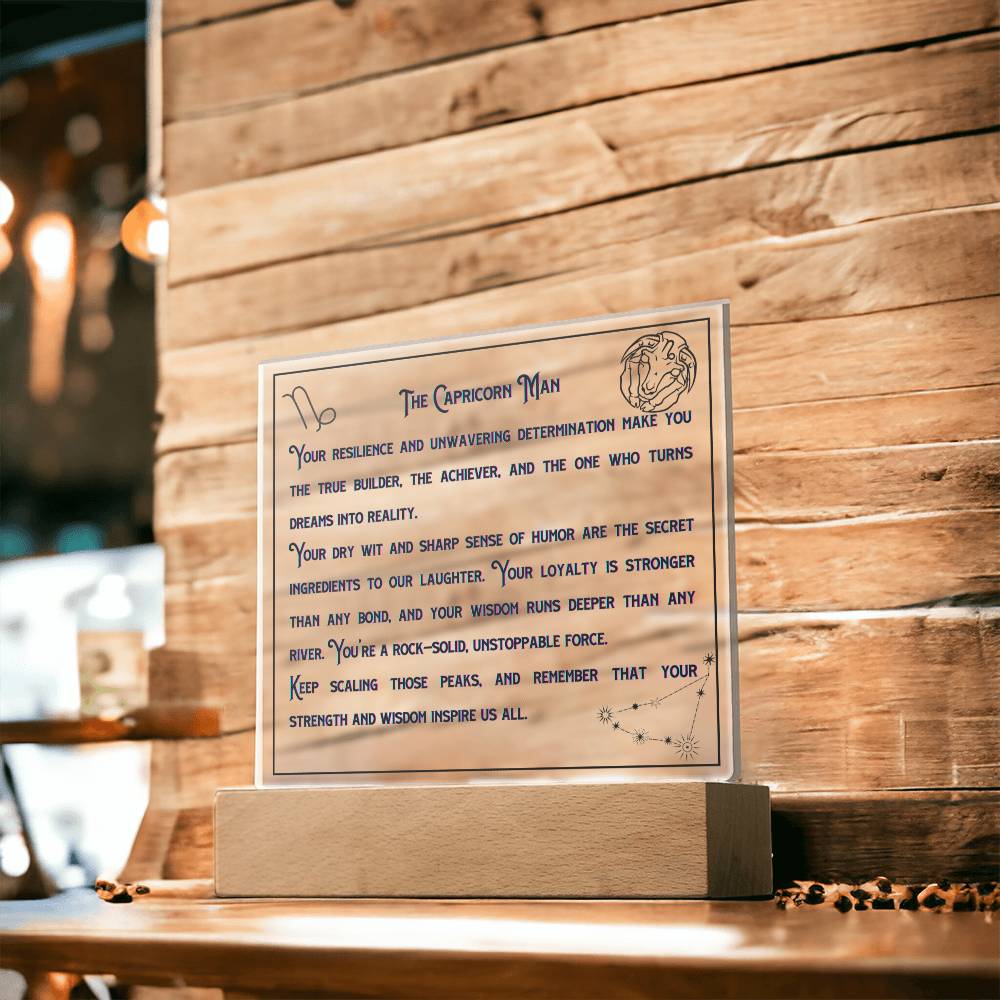 The Capricorn Man
Your resilience and unwavering determination make you
the true builder, the achiever, and the one who turns
dreams into reality.
Your dry wit and sharp sense of humor are the secret
ingredients to our laughter. Your loyalty is stronger
than any bond, and your wisdom runs deeper than any
river. You're a rock-solid, unstoppable force.
Keep scaling those peaks, and remember that your
strength and wisdom inspire us all.